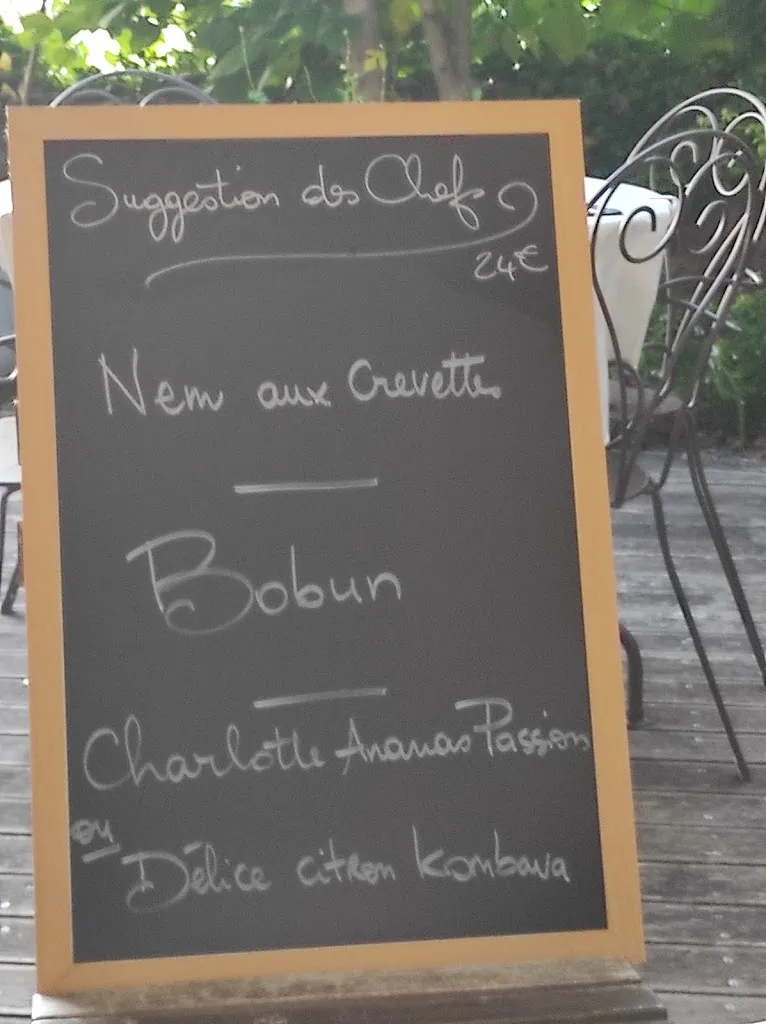 Suggestion des Chefs
24€
Nem aux Crevettes
Bobun
Charlotte Ananas Passion
ou
Délice citron kombava